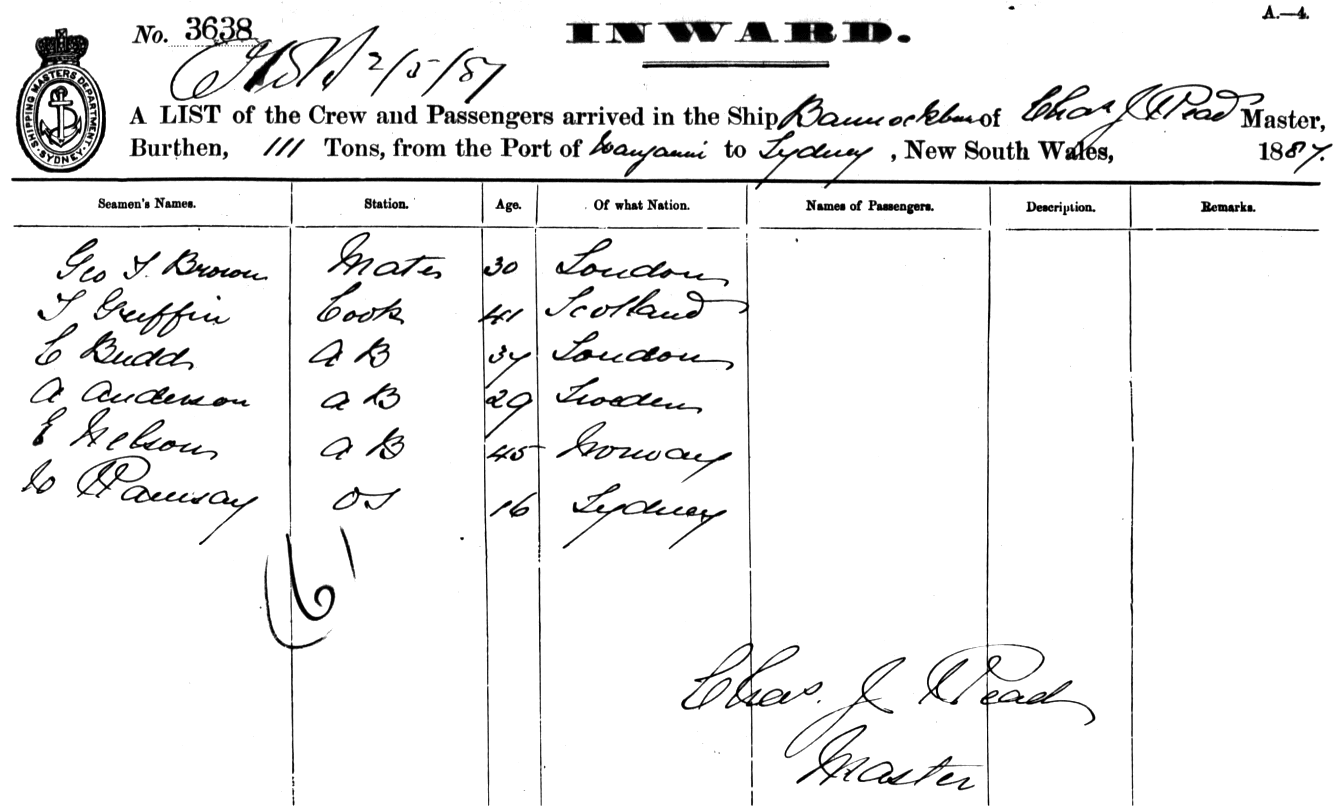 A.—4.
No. 3638
INWARD.
2/5/87
SHIPPING MASTERS DEPARTMENT. SYDNEY.
A LIST of the Crew and Passengers arrived in the Ship Bannockburn of Chas J Pead Master,
Burthen, 111 Tons, from the Port of to Sydney, New South Wales, 1887.
Seamen's Names. Station. Age. Of what Nation. Names of Passengers. Description. Remarks.
Geo T. Brown Mate 30 London
T Griffin Cook 41 Scotland
C Budd A B 37 London
A Anderson A B 29 Sweden
E Nelson A B 45 Norway
W Ramsay OS 16 Sydney
6
Chas. J Pead
Master